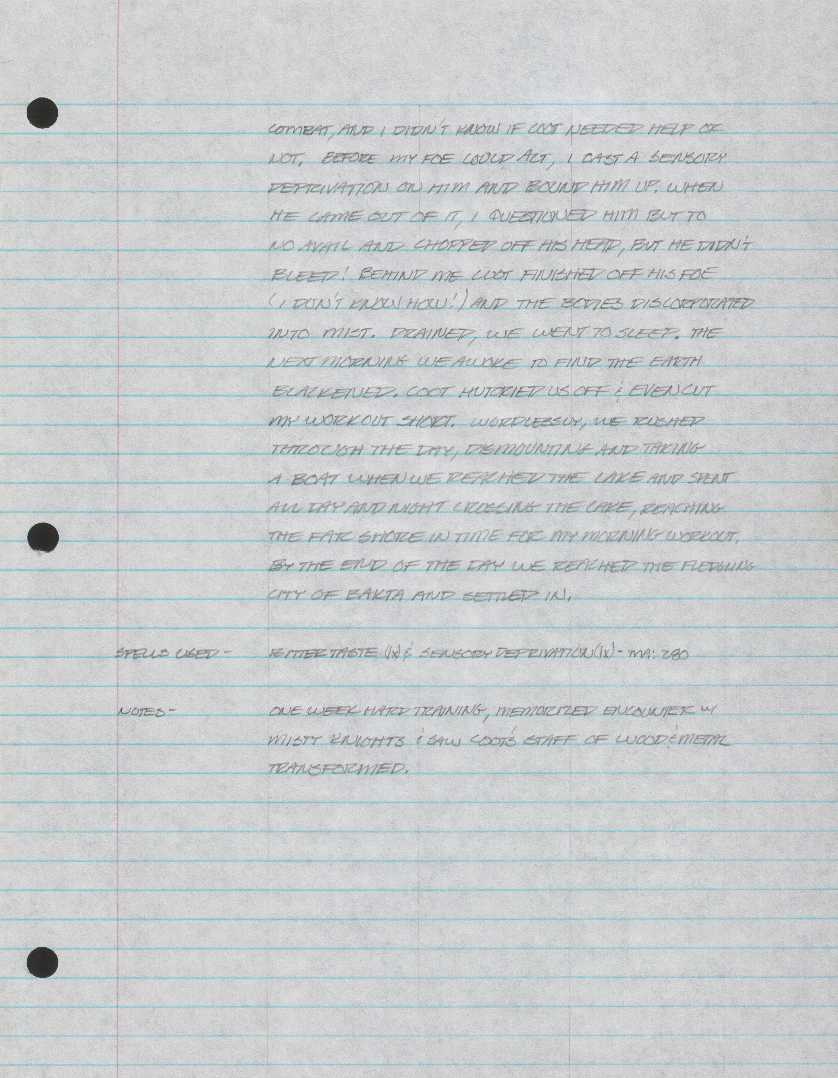 COMBAT, AND I DIDN'T KNOW IF COOT NEEDED HELP OR
NOT. BEFORE MY FOE COULD ACT, I CAST A SENSORY
DEPRIVATION ON HIM AND BOUND HIM UP. WHEN
HE CAME OUT OF IT, I QUESTIONED HIM BUT TO
NO AVAIL AND CHOPPED OFF HIS HEAD, BUT HE DIDN'T
BLEED! BEHIND ME COOT FINISHED OFF HIS FOE
(I DON'T KNOW HOW!) AND THE BODIES DISCORPORATED
INTO MIST. DRAINED, WE WENT TO SLEEP. THE
NEXT MORNING WE AWOKE TO FIND THE EARTH
BLACKENED. COOT HURRIED US OFF & EVEN CUT
MY WORKOUT SHORT. WORDLESSLY, WE RUSHED
THROUGH THE DAY, DISMOUNTING AND TAKING
A BOAT WHEN WE REACHED THE LAKE AND SPENT
ALL DAY AND NIGHT CROSSING THE LAKE, REACHING
THE FAR SHORE IN TIME FOR MY MORNING WORKOUT.
BY THE END OF THE DAY WE REACHED THE FLEDGLING
CITY OF BAKTA AND SETTLED IN.
SPELLS USED - BITTER TASTE (1x) & SENSORY DEPRIVATION (1x) - MA: 280
NOTES - ONE WEEK HARD TRAINING, MEMORIZED ENCOUNTER W/
MISTY KNIGHTS & SAW COOT'S STAFF OF WOOD & METAL
TRANSFORMED.